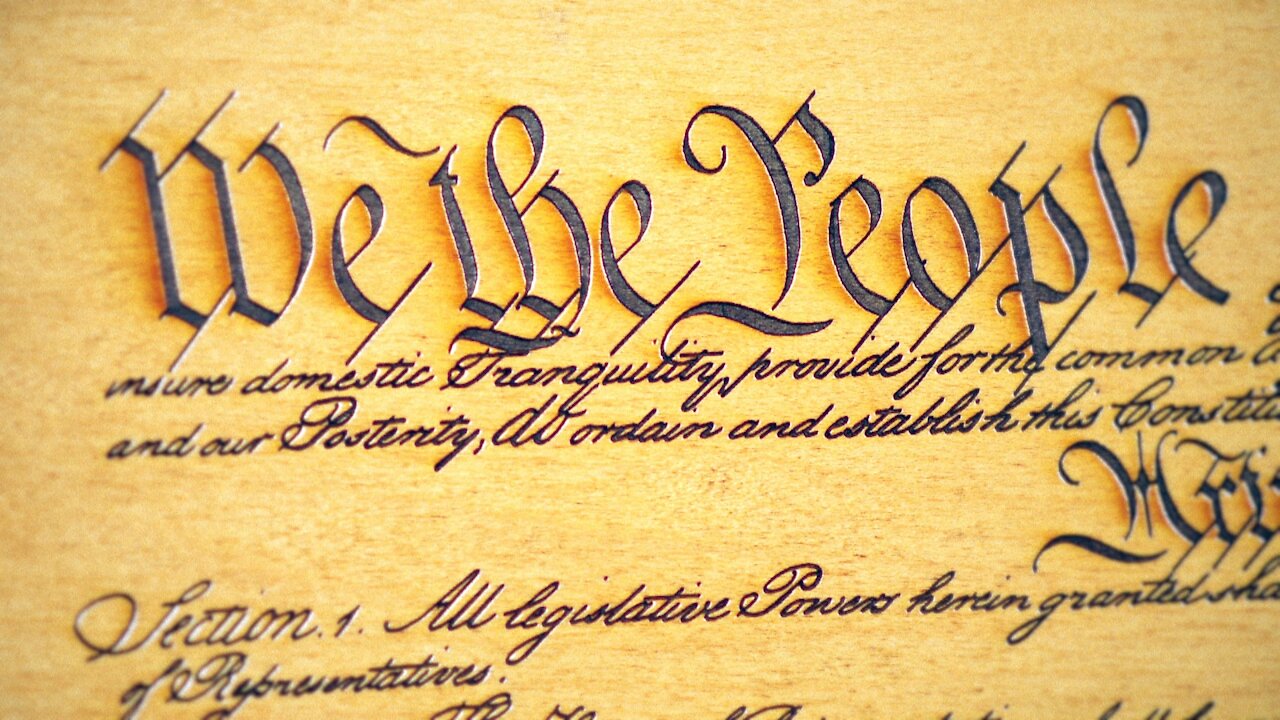 We the People
insure domestic Tranquility, provide for the common
and our Posterity, do ordain and establish this Constitu
Section. 1. All legislative Powers herein granted sha
of Representatives.